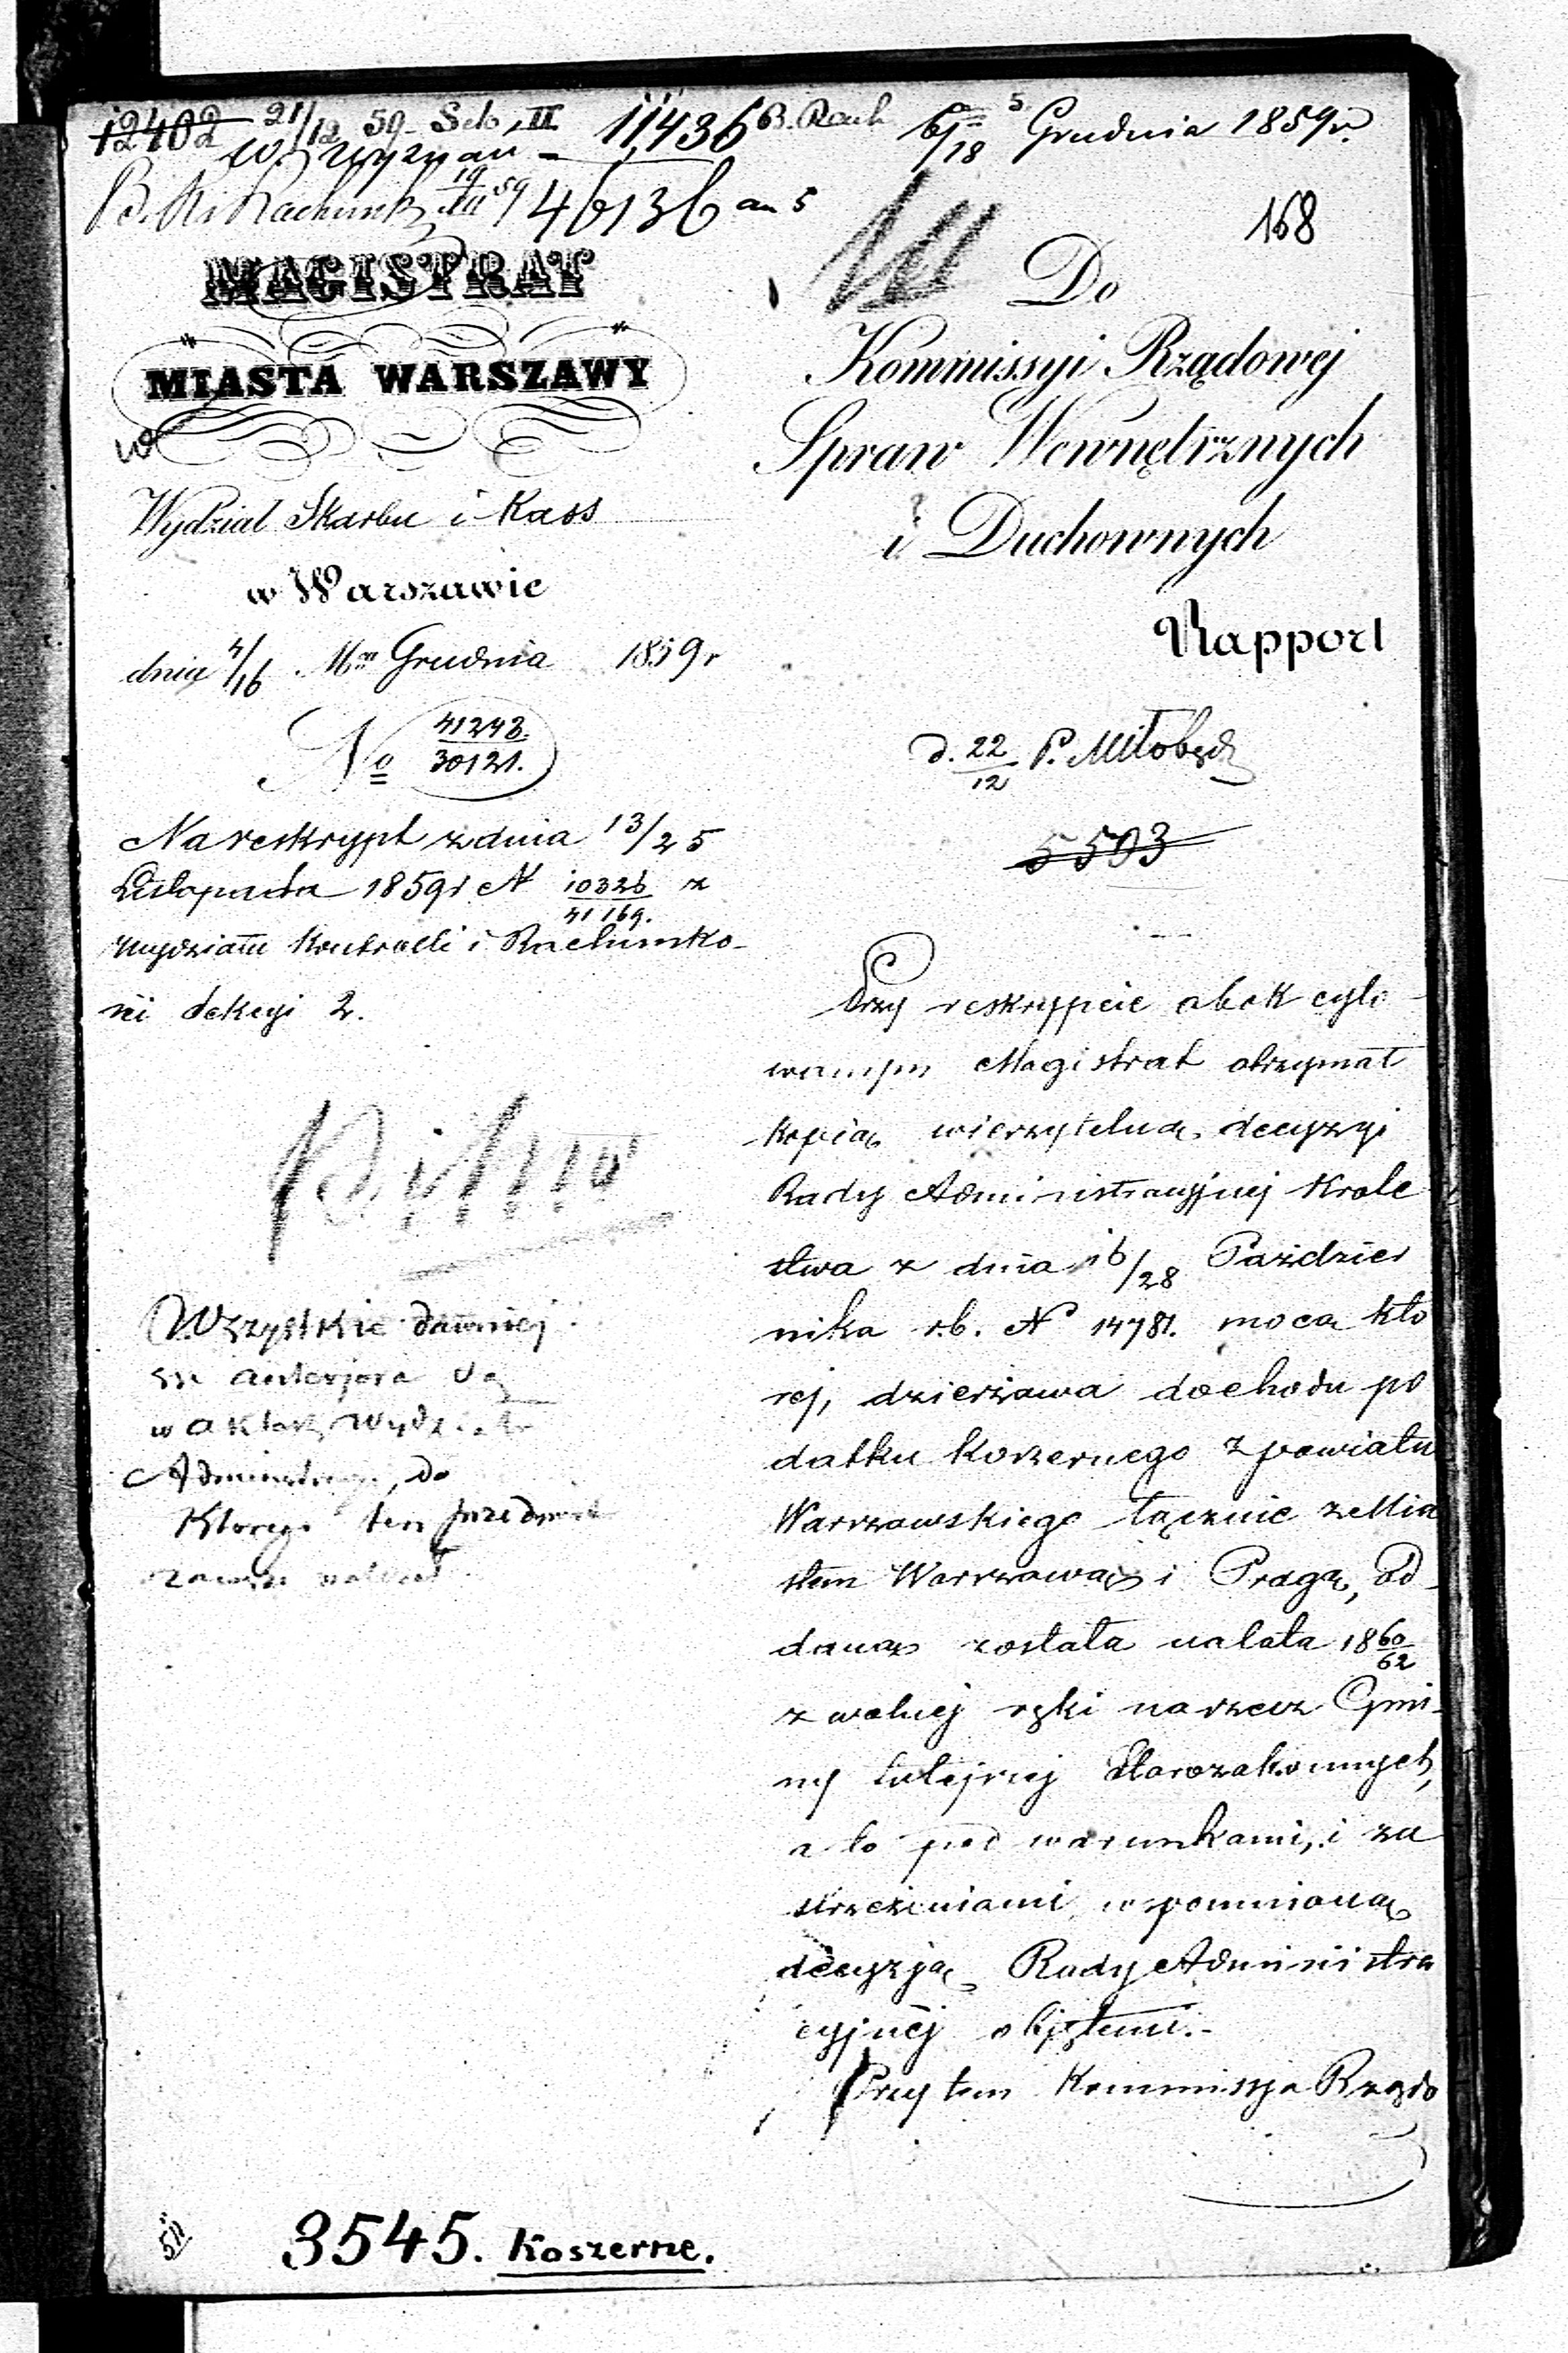 12402 21/12 59 11,436 B. Rach 6/18 Grudnia 1859 r.
46136
168
MAGISTRAT
MIASTA WARSZAWY
Wydział Skarbu i Kass
w Warszawie
dnia 4/16 Grudnia 1859 r
No 41243/30121.
Na reskrypt z dnia 13/25
Listopada 1859 r N 10326/41169. z
Wydziału Kontrolli i Rachunko-
ści Sekcyi 2.
Pilno
Wszystkie dawniej
anterjora są
w aktach Wydziału
Administracyi, do
którego ten przedmiot
Do
Kommissyi Rządowej
Spraw Wewnętrznych
i Duchownych
Rapport
d. 22/12 P. Miłobędz
5593
Przy reskrypcie obok cyto-
wanym Magistrat otrzymał
kopią wierzytelną decyzyi
Rady Administracyjnej Króle
stwa z dnia 16/28 Paździer
nika r.b. N 14781. mocą któ
rej, dzierżawa dochodu po
datku koszernego z powiatu
Warszawskiego łącznie z Mia
stem Warszawą i Pragą, od-
daną została na lata 1860/62
z wolnej ręki na rzecz Gmi-
ny tutejszej Starozakonnych,
a to pod warunkami, i za
strzeżeniami wspomnioną
decyzją Rady Administra
cyjnéj objętemi.-
Przytem Kommissja Rządo
3545. Koszerne.